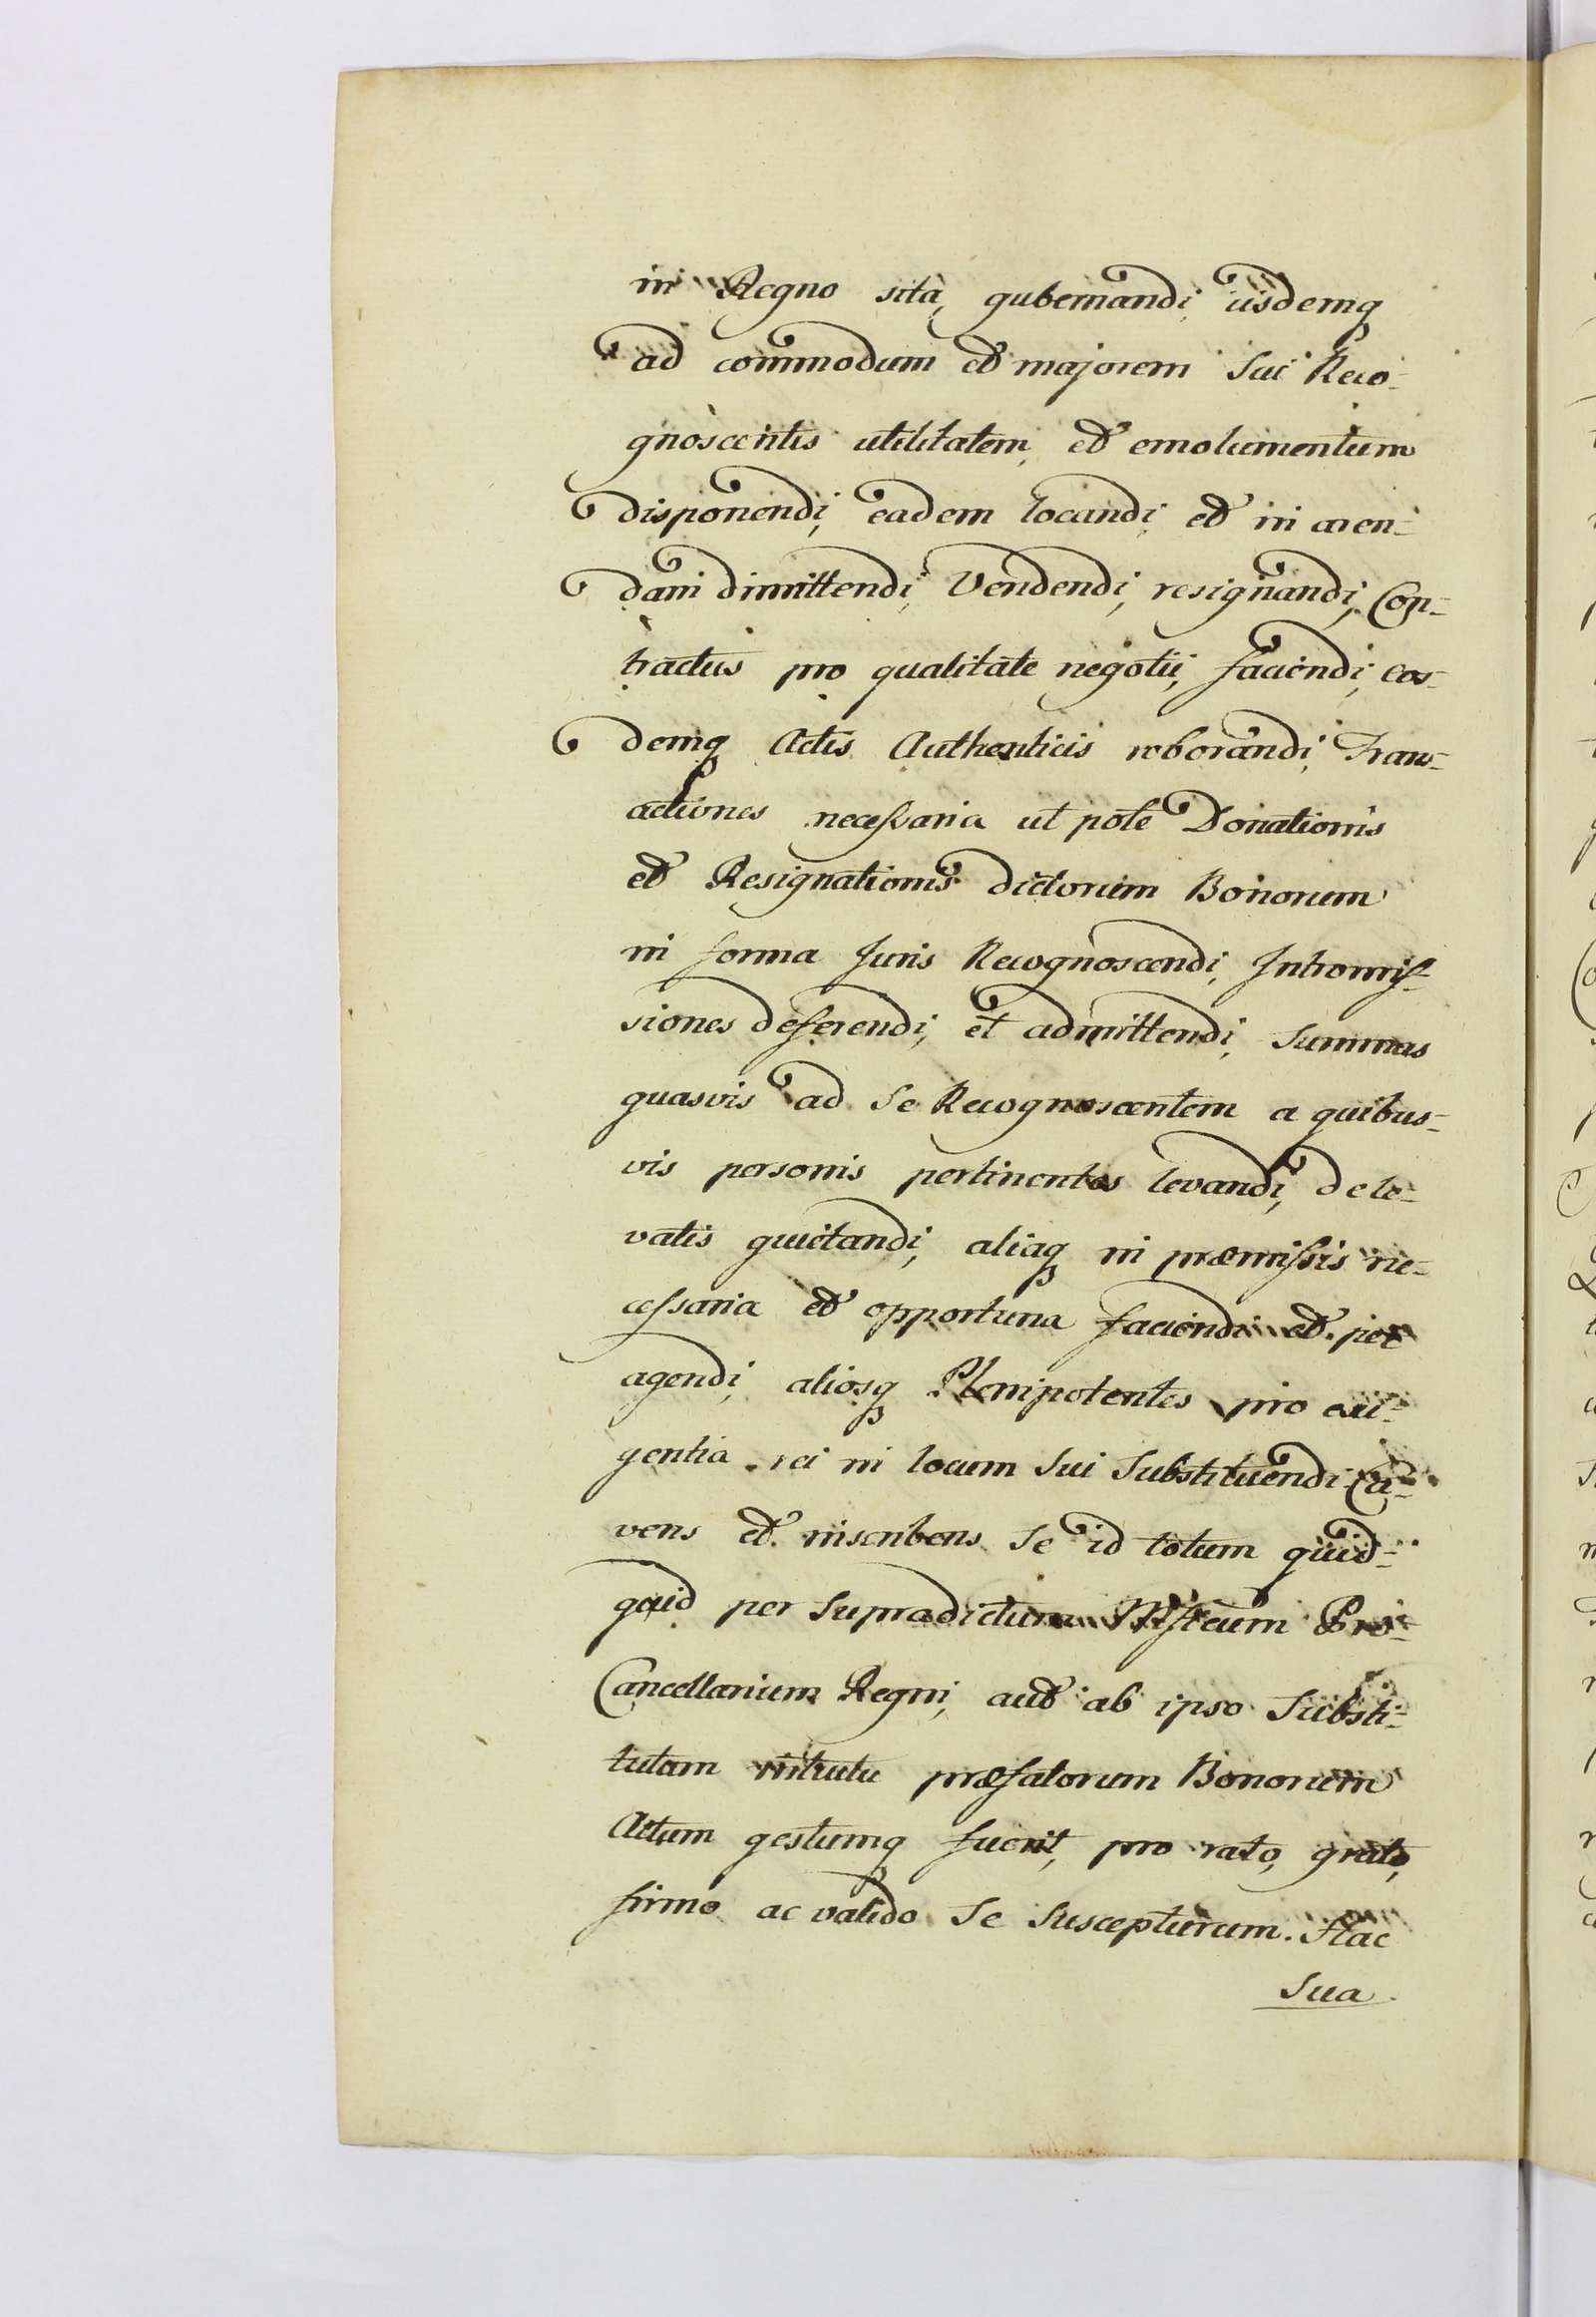 in Regno sita, gubernandi, iisdemq
ad commodum et majorem Sui Reco-
gnoscentis utilitatem, et emolumentum
disponendi, eadem locandi, et in aren-
dam dimittendi, Vendendi, resignandi, Con-
tractus pro qualitate negotii, faciendi, eos-
demq Actis Authenticis roborandi, Trans-
actiones necessaria ut pote Donationis
et Resignationis dictorum Bonorum
in forma Juris Recognoscendi, Intromis-
siones deferendi, et admittendi, Summas
quasvis ad Se Recognoscentem a quibus-
vis personis pertinentes levandi, de le-
vatis quietandi, aliaq in præmissis ne-
cessaria et opportuna faciendi et per
agendi, aliosq Plenipotentes pro exi-
gentia rei in locum Sui Substituendi. Ca-
vens et inscribens Se id totum quid-
quid per Supradictum Mfficum Pro-
Cancellarium Regni, aut ab ipso Substi-
tutam intuitu præfatorum Bonorum
Actum gestumq fuerit, pro rato, grato,
firmo ac valido Se Suscepturum. Hac
Sua